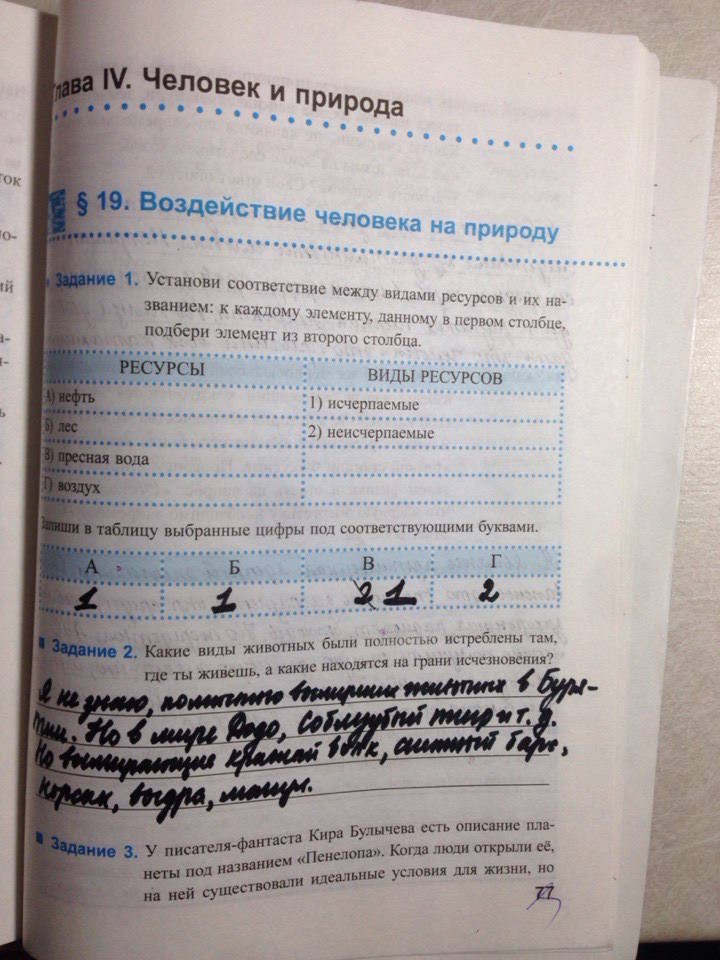 лава IV. Человек и природа
§ 19. Воздействие человека на природу
Задание 1. Установи соответствие между видами ресурсов и их на-
званием: к каждому элементу, данному в первом столбце,
подбери элемент из второго столбца.
РЕСУРСЫ ВИДЫ РЕСУРСОВ
А) нефть 1) исчерпаемые
Б) лес 2) неисчерпаемые
В) пресная вода
Г) воздух
Запиши в таблицу выбранные цифры под соответствующими буквами.
А Б В Г
1 1 2 1 2
Задание 2. Какие виды животных были полностью истреблены там,
где ты живёшь, а какие находятся на грани исчезновения?
Я не знаю, полностью вымерших животных в Буря-
тии. Но в мире Додо, Саблезубый тигр и т. д.
Но вымирающие красный волк, снежный барс,
корсак, выдра, манул.
Задание 3. У писателя-фантаста Кира Булычева есть описание пла-
неты под названием «Пенелопа». Когда люди открыли её,
на ней существовали идеальные условия для жизни, но
77